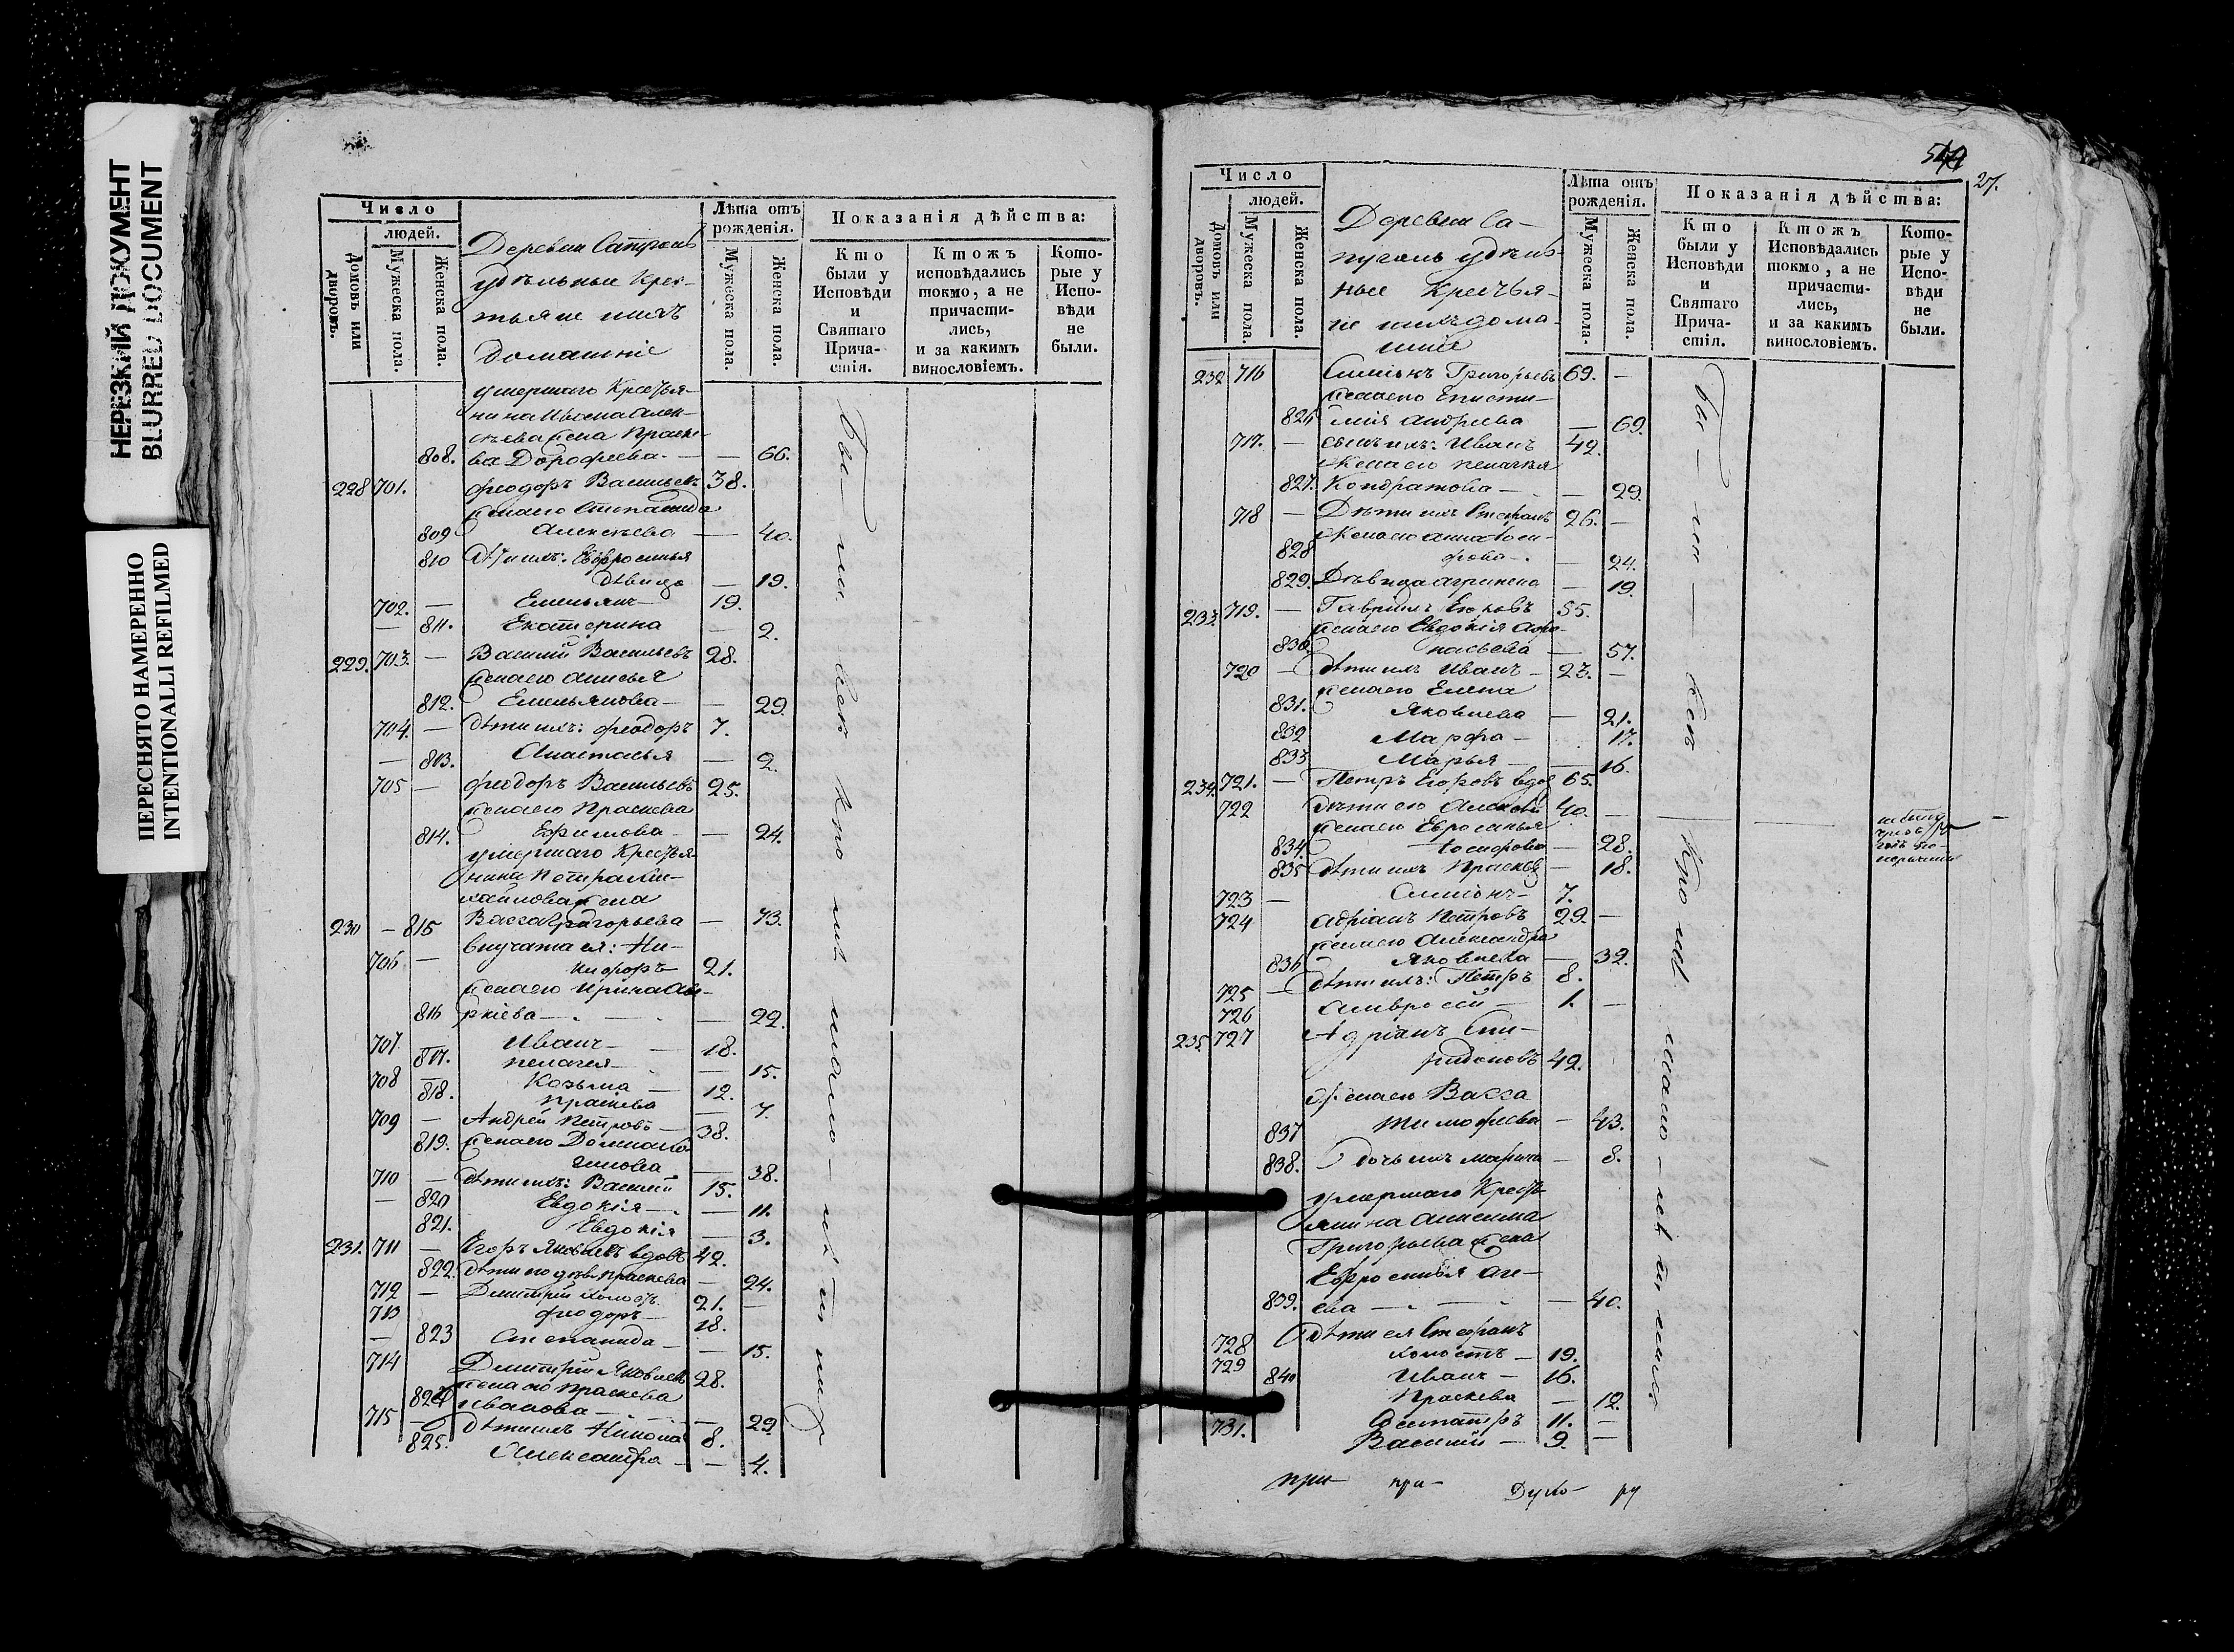 НЕРЕЗКИЙ ДОКУМЕНТ
BLURRED DOCUMENT
ПЕРЕСНЯТО НАМЕРЕННО
INTENTIONALLI REFILMED
Число
людей.
Домовъ или дворовъ.
Мужеска пола.
Женска пола.
Деревни
удѣльные Крес-
тьяне ихъ
домашніе
Лѣта отъ рожденія.
Мужеска пола.
Женска пола.
Показанія дѣйства:
Кто были у Исповѣди и Святаго Причастія.
Ктожъ исповѣдались токмо, а не причастились, и за какимъ винословіемъ.
Которые у Исповѣди не были.
умершаго Крестья-
нина Алек-
сѣева жена Праске-
808. ва Дорофеева — — 66.
228 701. Феодоръ Васильевъ 38.
жена его Степанида
809 Алексѣева — 40.
810 Дѣти ихъ: Евфросинья
дѣвица — 19.
702. — Емельянъ 19.
— 811. Екатерина — 2.
229. 703. — Василий Васильевъ 28.
жена его Анисья
812. Емельянова — — 29.
704. — дѣти ихъ: Феодоръ 7.
— 813. Анастасья — 2.
705 — Феодоръ Васильевъ 25.
жена его Праскева
814. Ефимова — 24.
умершаго Крестья-
нина Петра Ми-
хайлова жена
230 — 815 Васса Григорьева — 73.
внучата ея: Ни-
706 — кифоръ 21.
жена его Ирина
816 22.
707 Иванъ — 18.
817. Пелагея — 15.
708 Козьма — 12.
818. Праскева — 7.
709 — Андрей Петровъ — 38.
819. жена его Домна
— 38.
710 — дѣти ихъ: Василий 15.
— 820 Евдокія — 11.
821. Евдокія — 3.
231. 711 — Егоръ Яковлевъ вдовъ 42.
822. дѣти его дѣв. Праскева — 24.
712 — Димитрій холостъ 21. —
713 Феодоръ — 18.
— 823 Степанида — — 15.
714 Димитрій Яковлевъ 28.
жена его Праскева
824 Иванова — — 29
715 — дѣти ихъ Никола 8.
825. Александра — — 4.
Бы — ли — всѣ кромѣ мало — лѣтнихъ
27.
Число
людей.
Домовъ или дворовъ.
Мужеска пола.
Женска пола.
Деревни Са-
пуголь удѣль-
ные Крестья-
не ихъ дома-
шніе
Лѣта отъ рожденія.
Мужеска пола.
Женска пола.
Показанія дѣйства:
Кто были у Исповѣди и Святаго Причастія.
Ктожъ Исповѣдались токмо, а не причастились, и за какимъ винословіемъ.
Которые у Исповѣди не были.
232 716 Симіонъ Григорьевъ 69. —
жена его Еписти-
826 мія Андреева — 69.
717. — сынъ ихъ: Иванъ 42.
жена его Пелагея
827. Кондратова — — 29.
718 — Дѣти ихъ Стефанъ 26. —
жена его Анна Оси-
828 фова — — 24.
829. Дѣвица Агрипена — 19.
233 719. — Гавриилъ 55.
жена его Евдокія Афа-
830. насьева — 57.
720 — дѣти ихъ Иванъ — 23. —
жена его Елена
831. Яковлева — 21.
832 Марфа — 17.
833 Марья — — 16.
234. 721. — Петръ Егоровъ вдов 65.
722 дѣти его Алексѣй 40. —
жена его Евросинья
834. Іосифова — 28.
835 дѣти ихъ Праскев — 18.
723 — Симіонъ — 7.
724 Адріанъ Петровъ 29. —
жена его Александра
836 Яковлева — 32.
725 — дѣти ихъ: Петръ 8.
726 Амвросій — 1. —
235. 727 Адріанъ Спи-
ридоновъ 42.
жена его Васса
837 Тимофеева — 43.
838. дочь ихъ Марина — 8.
умершаго Кресть-
янина Анисима
Григорьева жена
Евфросинья
839. — — 40.
728 дѣти ея Стефанъ
холостъ — 19.
729 Иванъ — 16.
840 Праскева — 12.
11. —
731. Василий — 9. —
Бы — ли — всѣ Кромѣ мало — лѣтнихъ
при — при — Духо — ру